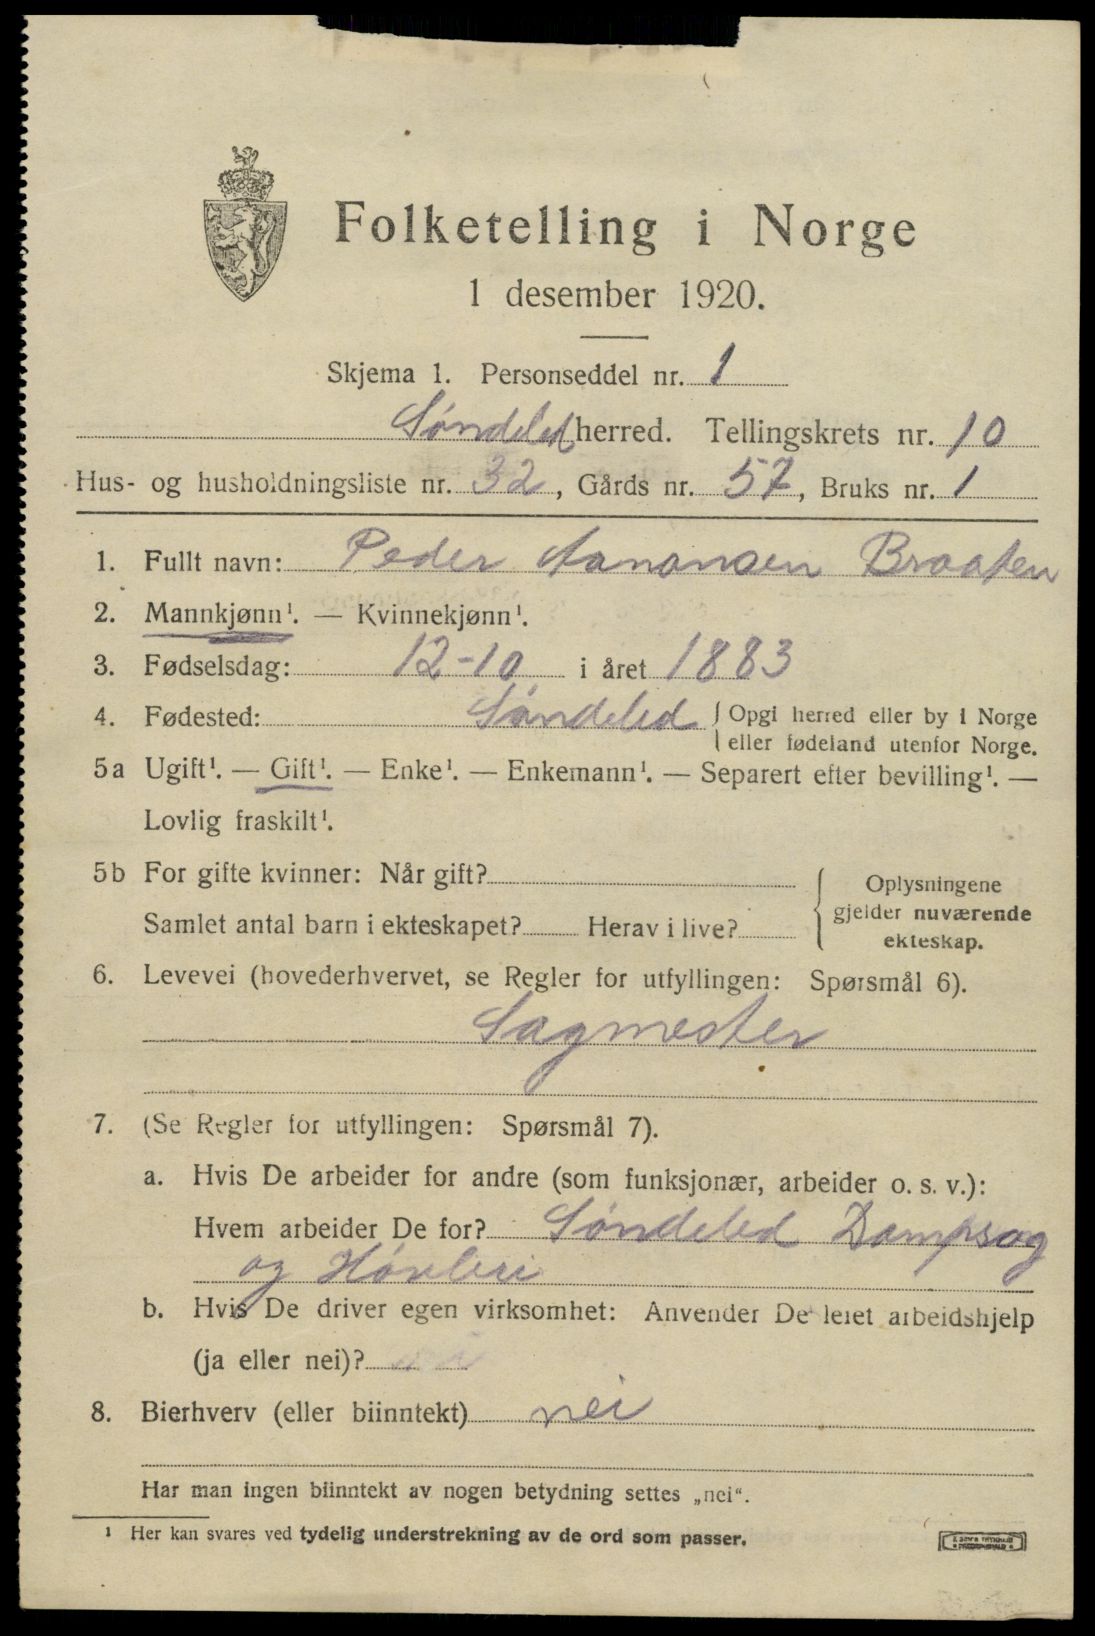 Folketelling i Norge
1 desember 1920.
Skjema 1. Personseddel nr. 1
Søndeled herred. Tellingskrets nr. 10
Hus- og husholdningsliste nr. 32, Gårds nr. 57, Bruks nr. 1
1. Fullt navn: Peder Aanonsen Braaten
2. Mannkjønn¹. — Kvinnekjønn¹.
3. Fødselsdag: 12-10 i året 1883
4. Fødested: Søndeled { Opgi herred eller by i Norge
eller fødeland utenfor Norge.
5a Ugift¹. — Gift¹. — Enke¹. — Enkemann¹. — Separert efter bevilling¹. —
Lovlig fraskilt¹.
5b For gifte kvinner: Når gift?
Samlet antal barn i ekteskapet? Herav i live?
{ Oplysningene
gjelder nuværende
ekteskap.
6. Levevei (hovederhvervet, se Regler for utfyllingen: Spørsmål 6).
Sagmester
7. (Se Regler for utfyllingen: Spørsmål 7).
a. Hvis De arbeider for andre (som funksjonær, arbeider o. s. v.):
Hvem arbeider De for? Søndeled Dampsag
og Høvleri
b. Hvis De driver egen virksomhet: Anvender De leiet arbeidshjelp
(ja eller nei)?
8. Bierhverv (eller biinntekt) nei
Har man ingen biinntekt av nogen betydning settes „nei“.
¹ Her kan svares ved tydelig understrekning av de ord som passer.